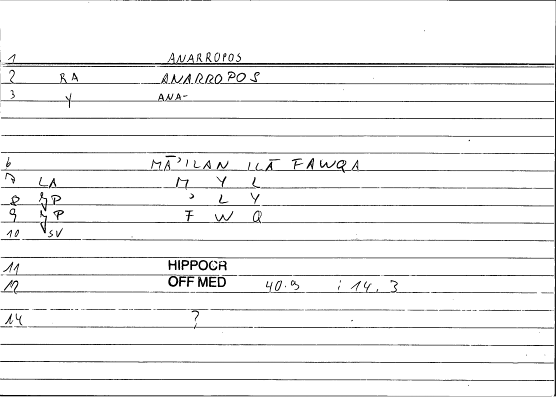 1 ANARROPOS
2 RA ANARROPOS
3 Y ANA-
6 MĀʾILAN ILĀ FAWQA
7 LA M Y L
8 ʒP ʾ L Y
9 ʒP F W Q
10 SV
11 HIPPOCR
12 OFF MED 40.9 ; 14.3
14 ?